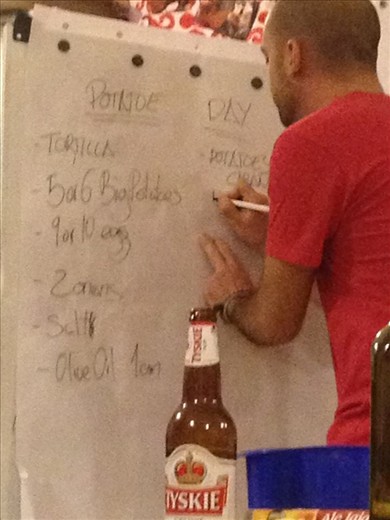 POTATOE DAY
- TORTILLA
- 5 or 6 Big Potatoes
- 9 or 10 eggs
- 2 onions
- Salt
- Olive Oil 1cm
- POTATOES
TYSKIE
TYSKIE